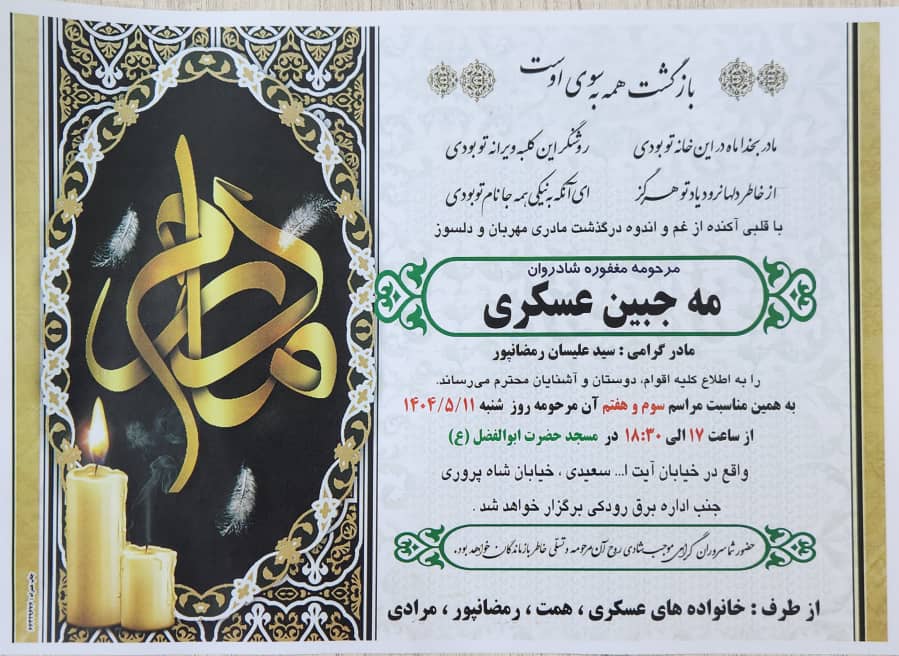 بازگشت همه به سوی اوست
مادر بخدا ماه در این خانه تو بودی روشنگر این کلبه ویرانه تو بودی
از خاطر دلها نرود یاد تو هرگز ای آنکه به نیکی همه جا نام تو بودی
با قلبی آکنده از غم و اندوه درگذشت مادری مهربان و دلسوز
مرحومه مغفوره شادروان
مه جبین عسکری
مادر گرامی : سید علیسان رمضانپور
را به اطلاع کلیه اقوام، دوستان و آشنایان محترم می‌رساند.
به همین مناسبت مراسم سوم و هفتم آن مرحومه روز شنبه ۱۴۰۴/۵/۱۱
از ساعت ۱۷ الی ۱۸:۳۰ در مسجد حضرت ابوالفضل (ع)
واقع در خیابان آیت ا... سعیدی ، خیابان شاه پروری
جنب اداره برق رودکی برگزار خواهد شد .
حضور شما سروران گرامی موجب شادی روح آن مرحومه و تسلی خاطر بازماندگان خواهد بود.
از طرف : خانواده های عسکری ، همت ، رمضانپور ، مرادی
مادرم